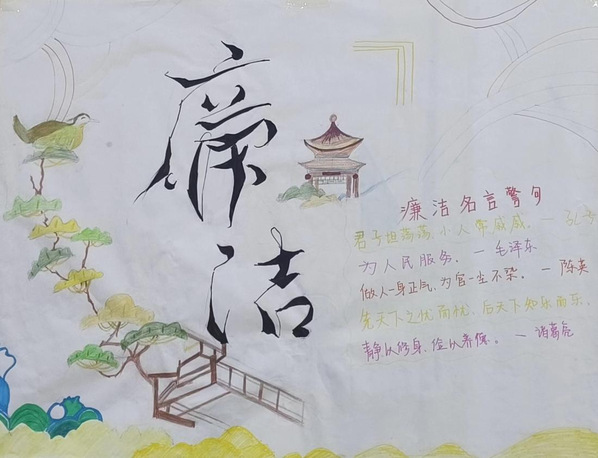 廉洁
廉洁名言警句
君子坦荡荡,小人常戚戚。一孔子
为人民服务。一毛泽东
做人一身正气,为官一尘不染。一陈英
先天下之忧而忧,后天下之乐而乐。
静以修身,俭以养德。一诸葛亮